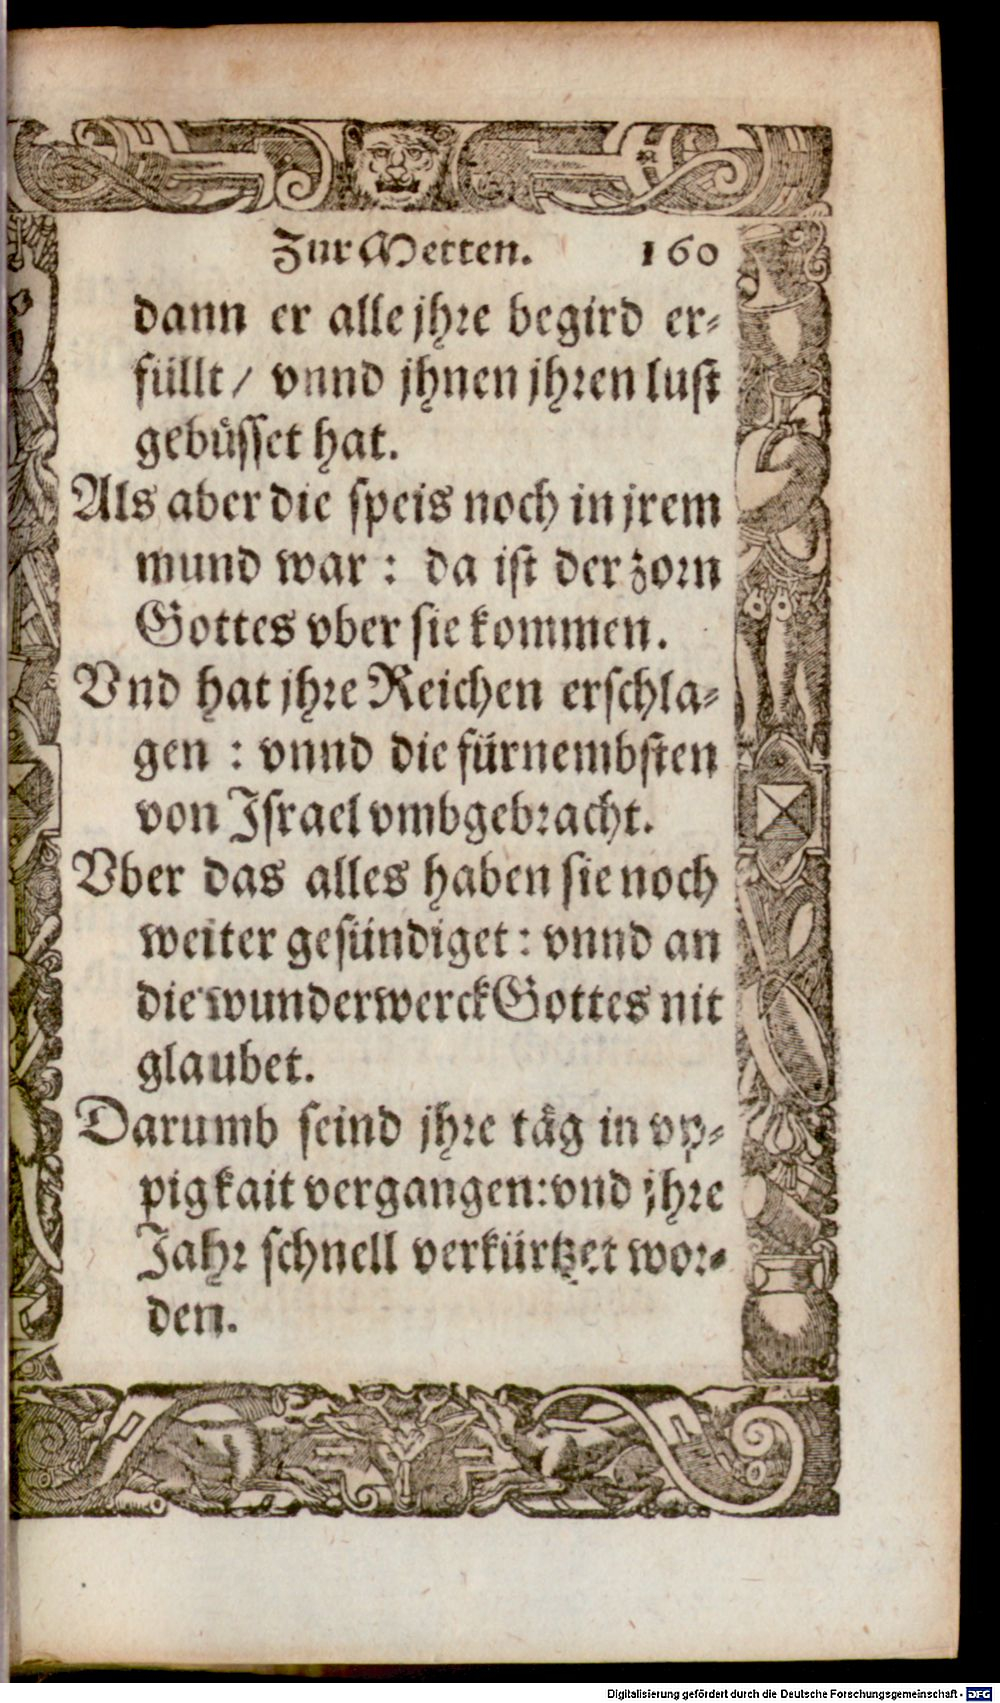 Zur Metten. 160
dann er alle jhre begird er⸗
füllt / vnnd jhnen jhren lust
gebüsset hat.
Als aber die speis noch in jrem
mund war : da ist der zorn
Gottes vber sie kommen.
Vnd hat jhre Reichen erschla⸗
gen : vnnd die fürnembsten
von Israel vmbgebracht.
Vber das alles haben sie noch
weiter gesündiget : vnnd an
die wunderwerck Gottes nit
glaubet.
Darumb seind jhre täg in vp⸗
pigkait vergangen: vnd jhre
Jahr schnell verkürtzet wor⸗
den.
Digitalisierung gefördert durch die Deutsche Forschungsgemeinschaft - DFG